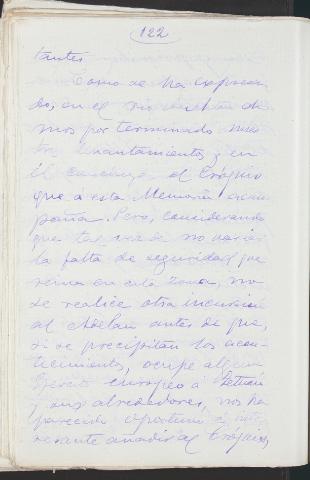 122
tantes
Como se ha expresa-
do, en el río
dimos por terminado nues-
tro levantamiento y en
él concluye el Cróquis
que a esta Memoria acom-
paña. Pero, considerando
que tal vez de no variar
la falta de seguridad que
reina en esta zona, no
se realice otra incursión
al antes de que,
si se precipitan los acon-
tecimientos, ocupe algun
Ejército europeo a Tetuán
y sus alrededores, nos ha
parecido oportuno é inte-
resante añadir al Cróquis,